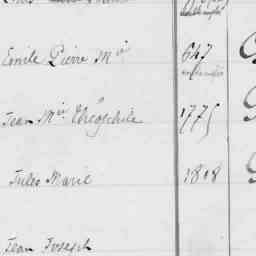 Emile Pierre Mie 647
Jean Mie Théophile 1775
Jules Marie 1818
Jean Joseph